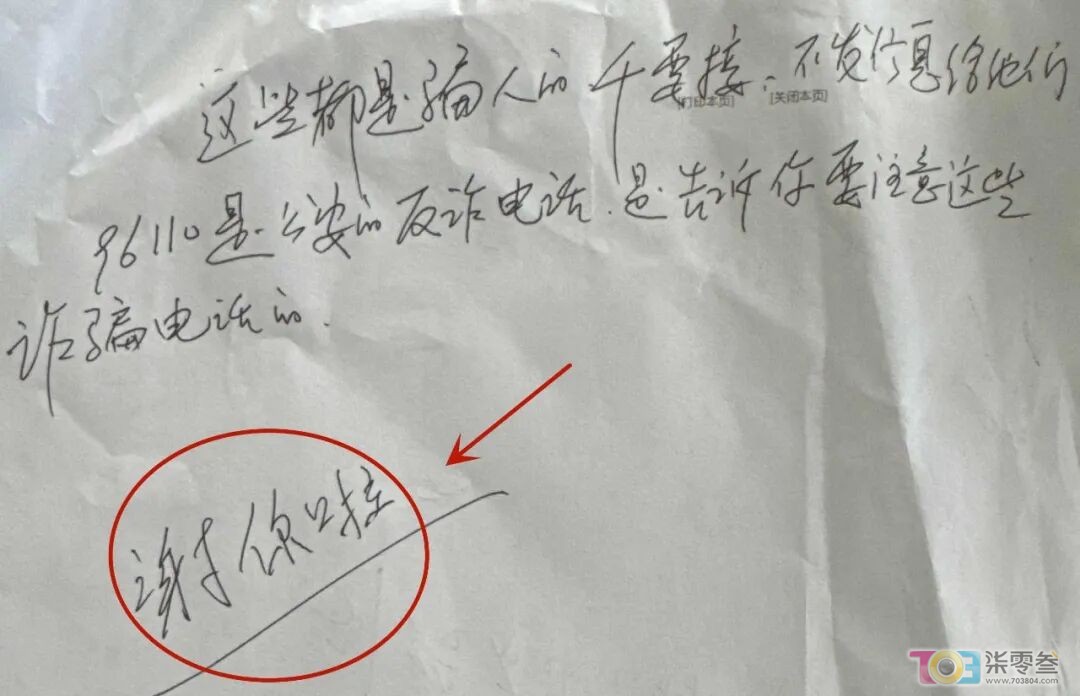 这些都是骗人的千要接.不发信息给他们
[打印本页] [关闭本页]
96110是公安的反诈电话.是告诉你要注意这些
诈骗电话的.
谢你啦
703 柒零叁
www.703804.com